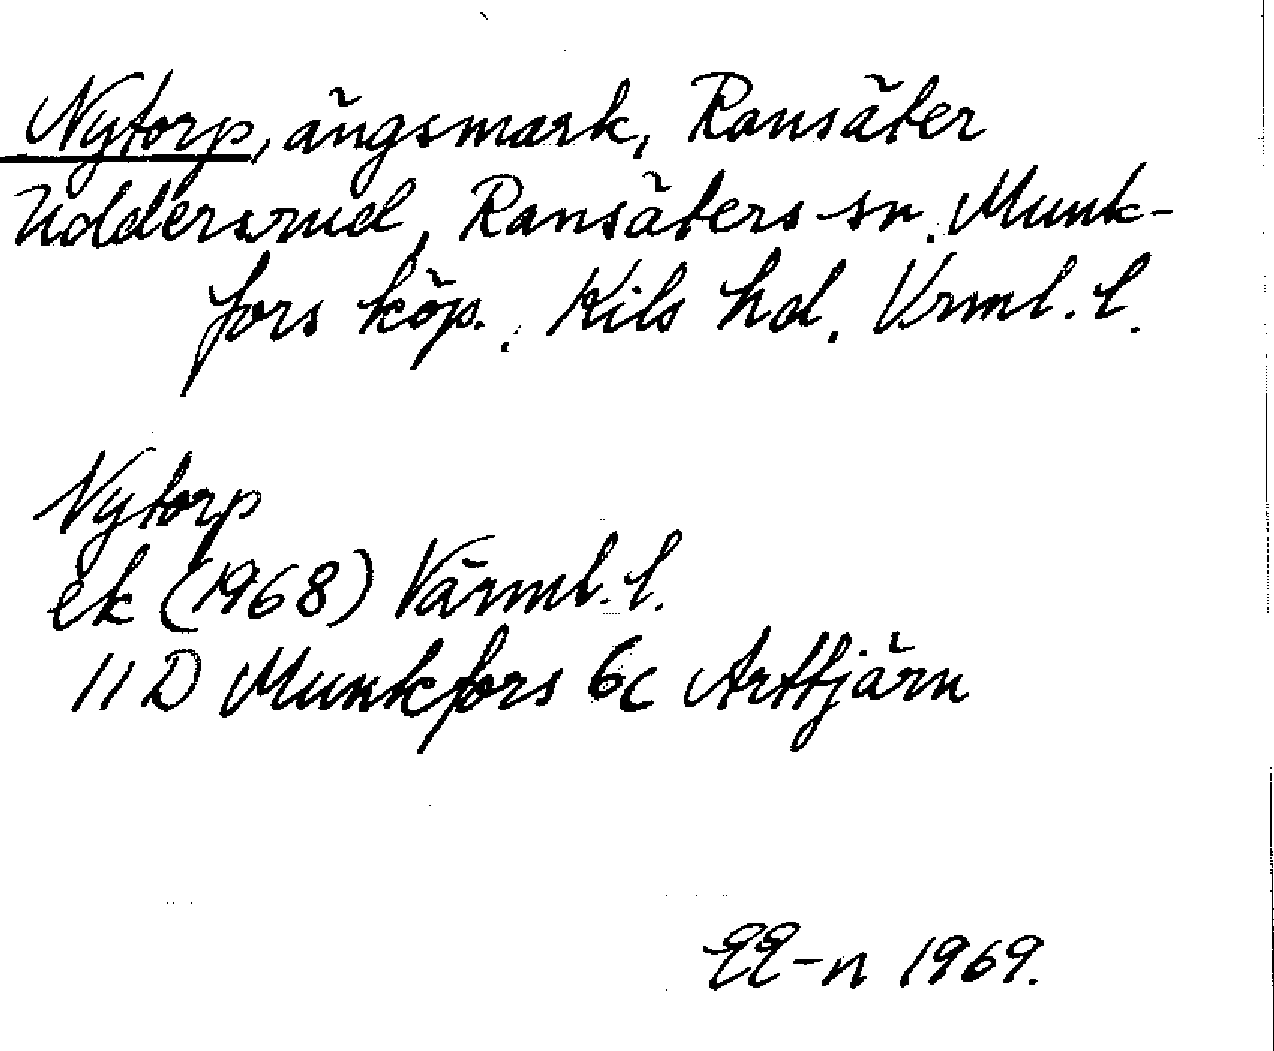 Nytorp, ängsmark, Ransäter
Uddersrud, Ransäters sn, Munk-
fors köp., Kils hd, Vrml. l.
Nytorp
ek (1968) Värml. l.
11 D Munkfors 6c Arttjärn
EE-n 1969.